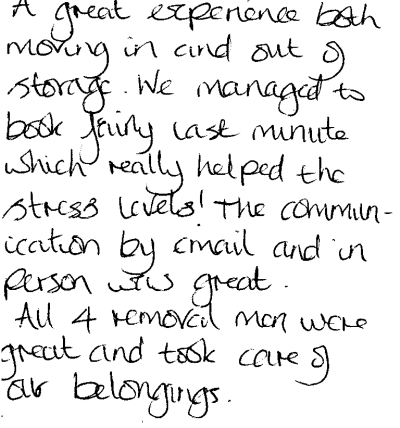 A great experience both
moving in and out of
storage. We managed to
book fairly last minute
which really helped the
stress levels! The commun-
ication by email and in
person was great.
All 4 removal men were
great and took care of
our belongings.